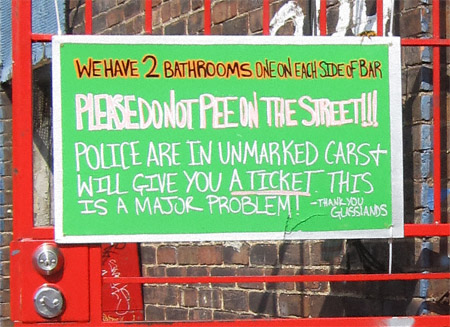 WE HAVE 2 BATHROOMS ONE ON EACH SIDE OF BAR
PLEASE DO NOT PEE ON THE STREET!!!
POLICE ARE IN UNMARKED CARS +
WILL GIVE YOU A TICKET. THIS
IS A MAJOR PROBLEM! -THANK YOU
GUSSLANDS